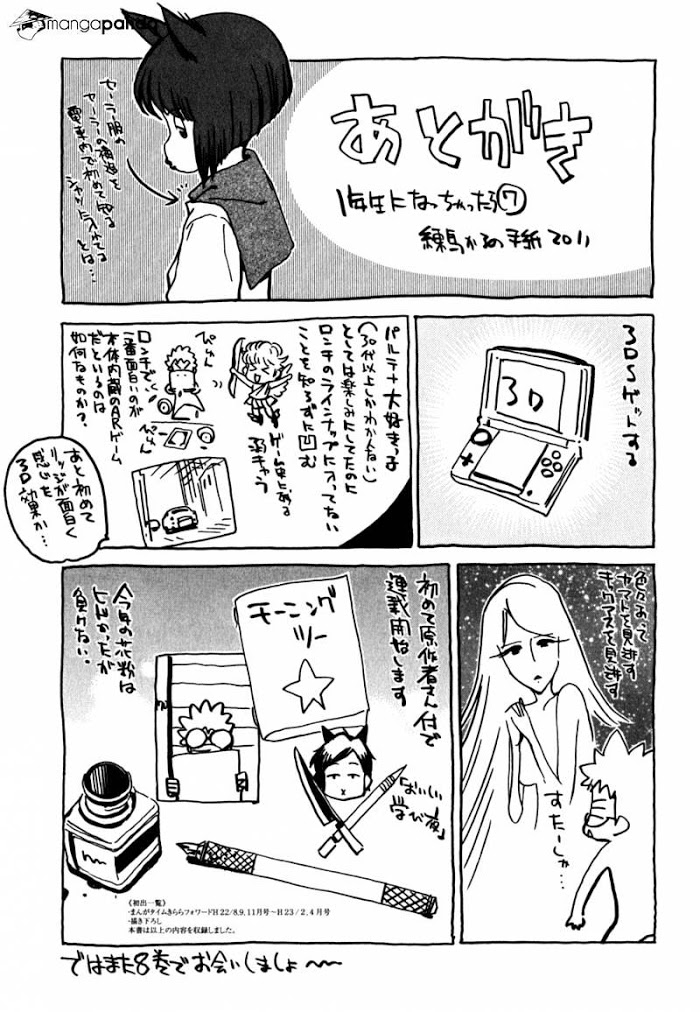 mangapanda
あとがき
1年生になっちゃったら⑦
練馬かるの手紙2011
セーラー服の
セーラーの裾を
電車内で初めて知る
シャツに入れてる
とは…
3DSゲットする
3D
パルテナ大好きっ子
(30代以上しかわかんない)
としては楽しみにしてたのに
ロンチのラインナップに入ってない
ことを知らずに凹む
ゲーム史に残る
弱キャラ
ぴゅん
ぴゅん
ロンチで
一番面白いのが
本体内蔵のARゲーム
だというのは
如何なものか?
あと初めて
リッジが面白く
感じた
3D効果か…
色々あって
ヤマトを見逃す
ヤクアスを見逃す
すたーしゃ…
初めて原作者さん付で
連載開始します
モーニング
ツー
「おいしい
学び夜」
今年の花粉は
ヒドかったが
負けない。
《初出一覧》
・まんがタイムきららフォワードH22/8,9,11月号〜H23/2,4月号
・描き下ろし
本書は以上の内容を収録しました。
ではまた8巻でお会いしましょ〜